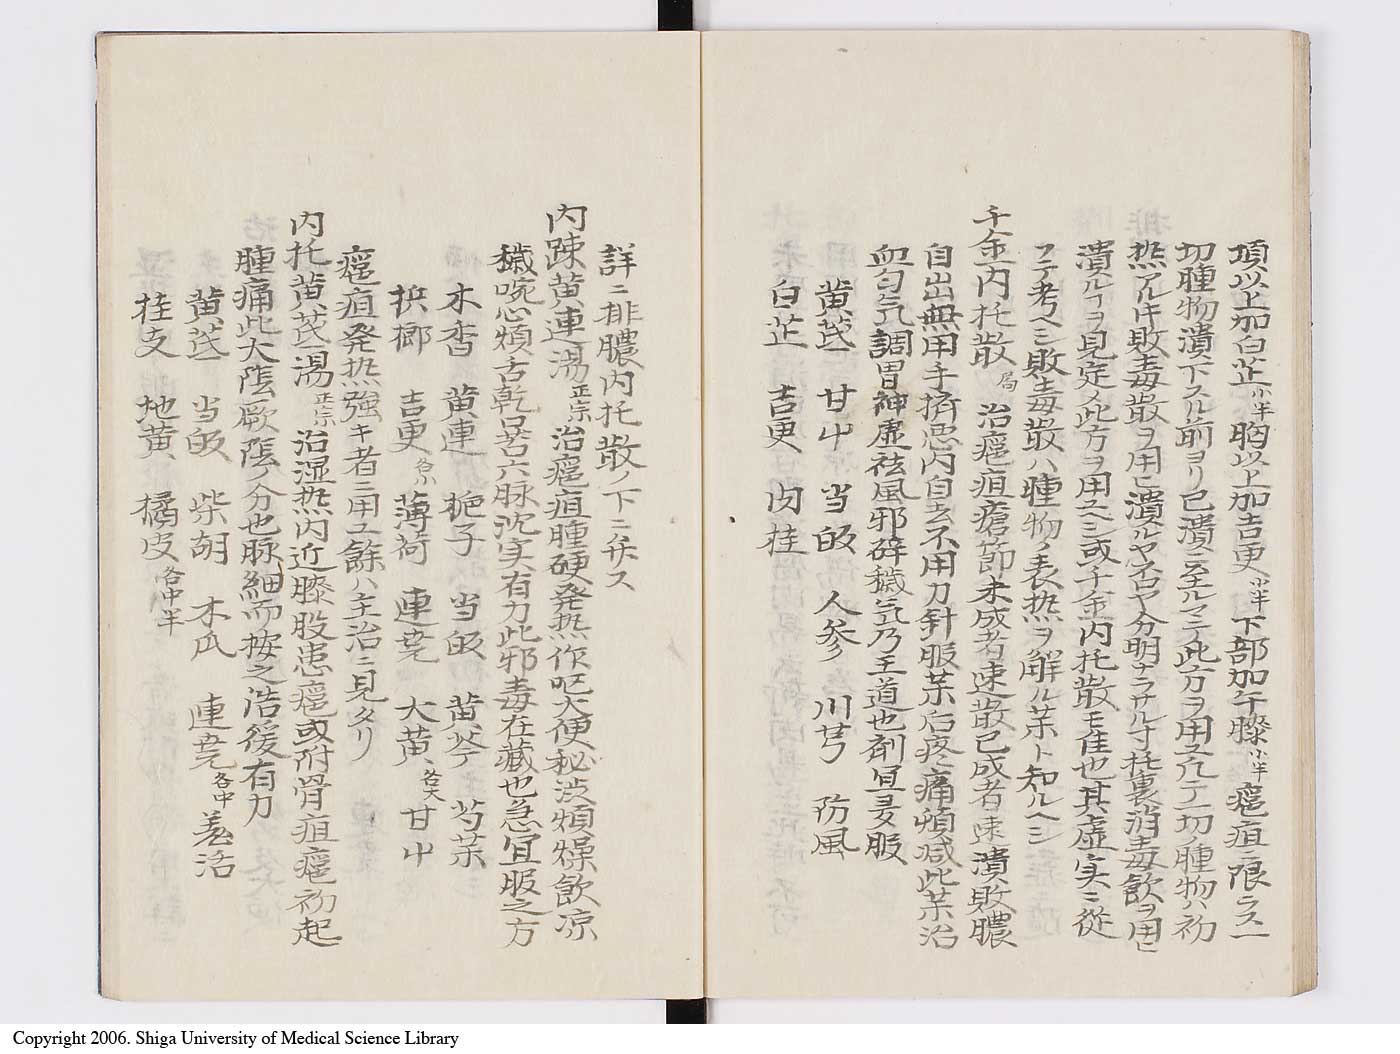 項以上加白芷小半胸以上加吉更小半下部加午膝小半癰疽ニ限ラス一
切腫物潰下スル前ヨリ已潰ニ至ルマテ此方ヲ用ユ凡テ一切ノ腫物ハ初
熱アル𪜈敗毒散ヲ用ヒ潰ルヤ否ヤ分明ナラサル寸托裏消毒飲ヲ用ヒ
潰ルヿヲ見定メ此方ヲ用ユヘシ或千金内托散モ佳也其虚实ニ從
フテ考ヘシ敗毒散ハ腫物ノ表熱ヲ解ル薬ト知ルヘシ
千金内托散局 治癰疽瘡節未成者速散已成者速潰敗膿
自出無用手擠悪内自去不用刀針服薬后疼痛頓减此薬治
血匀氣調胃神虚祛風邪辟穢氣乃王道也剤宜多服
黄芪 甘艸 当皈 人参 川芎 防風
白芷 吉更 肉桂
詳ニ排膿内托散ノ下ニ弁ス
内踈黄連湯正宗治癰疽腫硬発熱作呕大便秘渋煩燥飲凉
穢啘心煩舌乾口苦六脉沈实有力此邪毒在藏也急宜服之方
木香 黄連 梔子 当皈 黄芩 芍薬
梹榔 吉更各小 薄荷 連翹 大黄各大 甘艸
癰疽発热強キ者ニ用ユ餘ハ主治ニ見タリ
内托黄芪湯正宗 治湿热内近膝股患癰或附骨疽癰初起
腫痛此大陰厥陰ノ分也脉細而按之浩後有力
黄芪 当皈 柴胡 木瓜 連翹各中 羗活
桂支 地黄 橘皮各中半
Copyright 2006. Shiga University of Medical Science Library